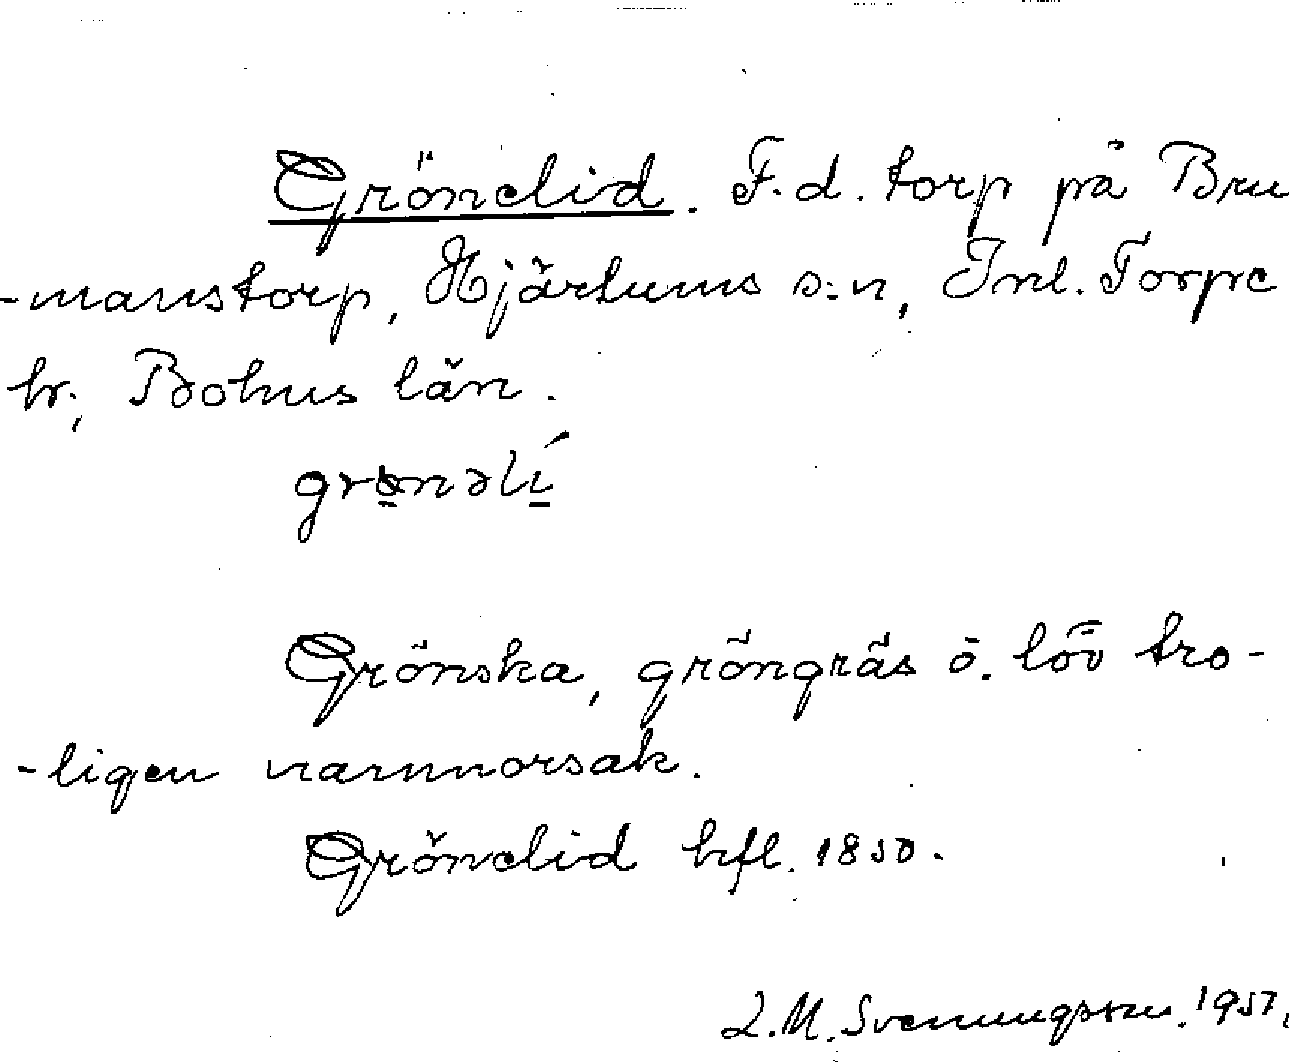 Grönelid. F.d. torp på Bru
-manstorp, Hjärtums s:n, Inl. Torpe
hr, Bohus län.
grønəlí
Grönska, gröngräs o. löv tro-
-ligen namnorsak.
Grönelid hfl. 1850.
L.M. Svenungsson. 1957.